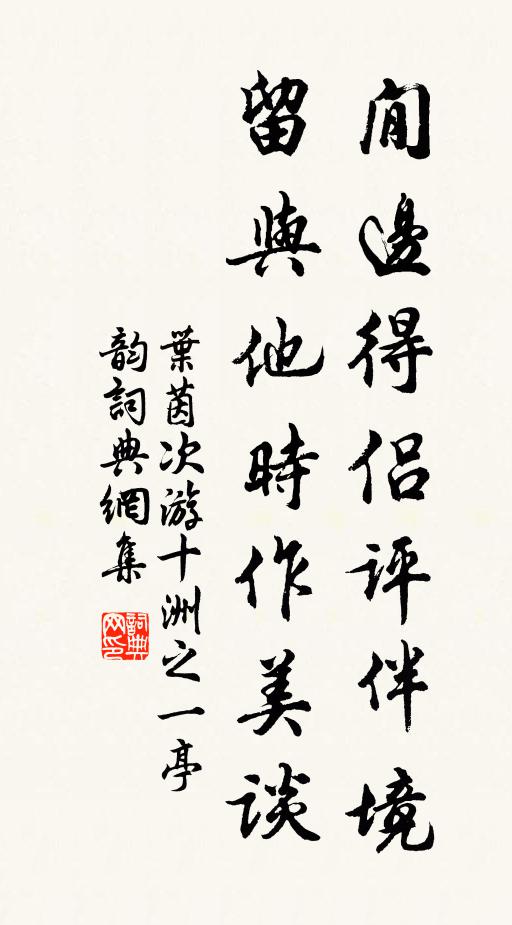 閒邊得侶評伴境
留與他時作美談
葉茵次游十洲之一亭
韵詞典網集
詞典网印